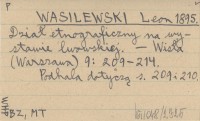 P
WASILEWSKI Leon 1895.
Dział etnograficzny na wy-
stawie lwowskiej. — Wisła
(Warszawa) 9: 209–214.
Podhala dotyczą s. 209 i 210.
BZ, MT